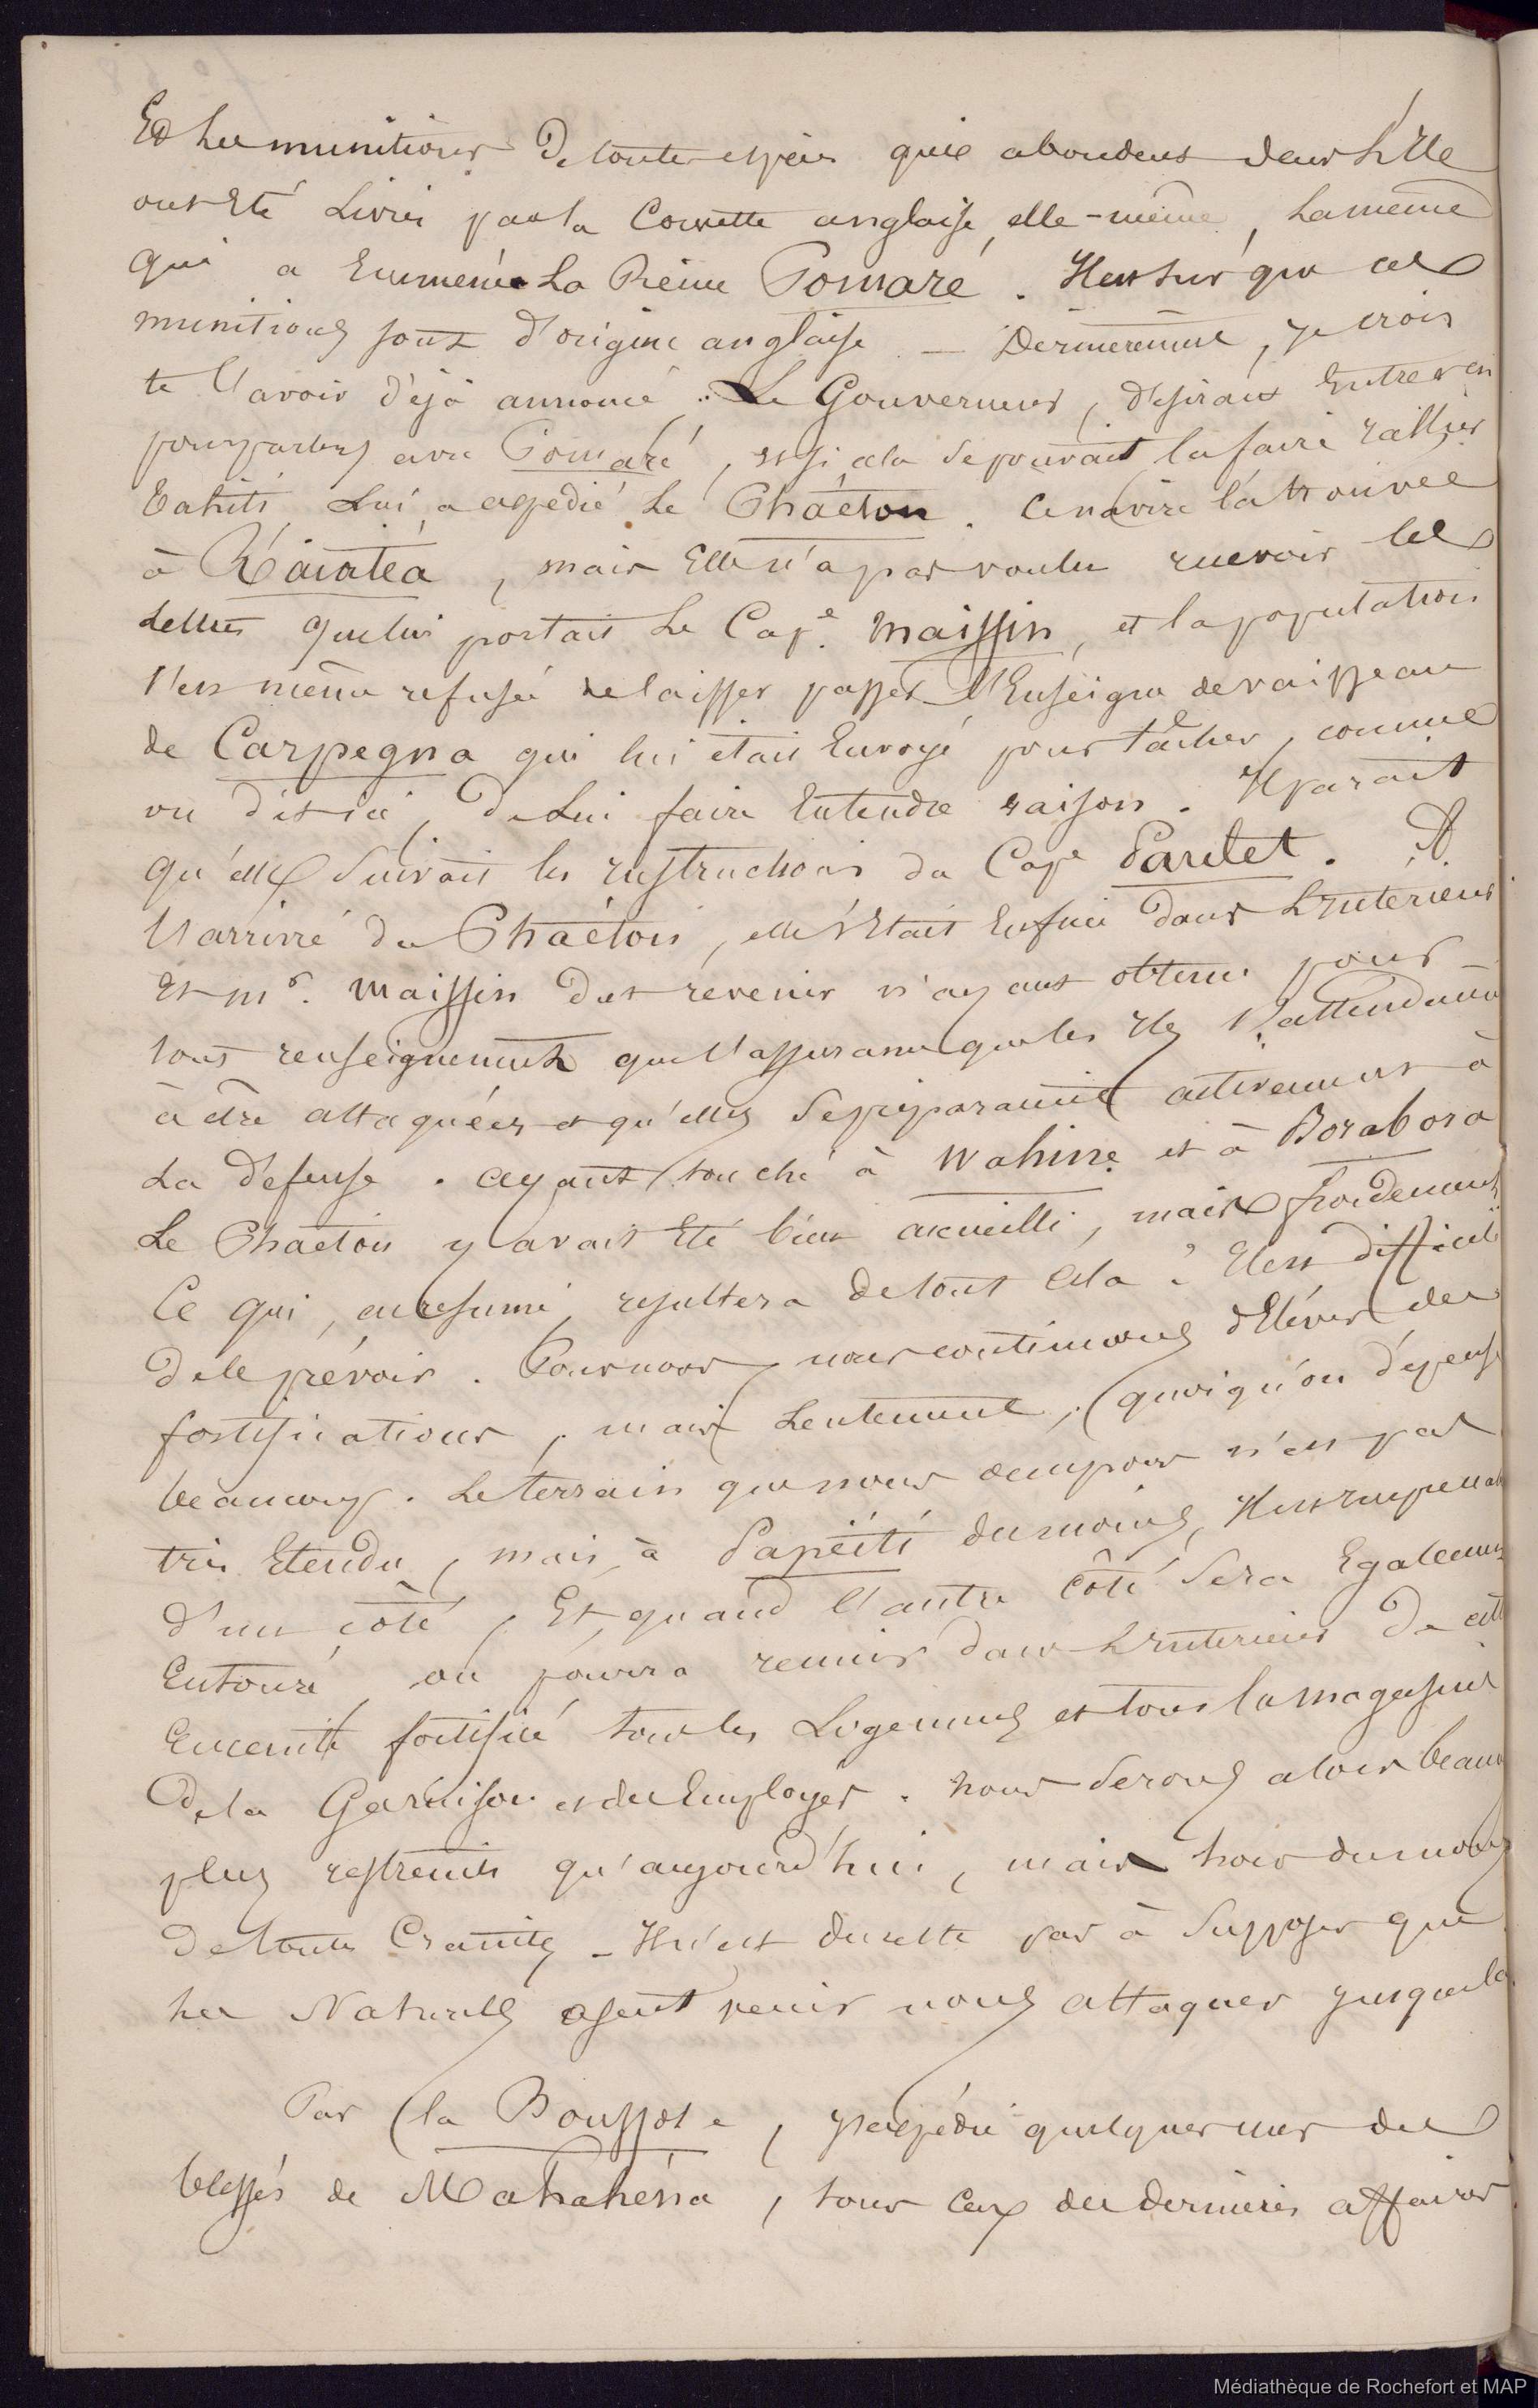 Et les munitions de toutes espèces qui abondent dans l'Ile
ont été livrées par la Corvette anglaise, elle-même, la même
qui a emmené la Reine Pomaré. Il est sûr que ces
munitions sont d'origine anglaise — Dernièrement, je crois
te l'avoir déjà annoncé, Le Gouverneur, désirant entrer en
pourparlers avec Pomaré, et si cela se pouvait la faire rallier
Tahiti, lui a expédié le Phaéton. Ce navire l'a trouvée
à Raïatéa, mais elle n'a pas voulu recevoir les
lettres que lui portait le Cape. Maissin, et la population
s'est même refusée de laisser passer l'Enseigne de vaisseau
de Carpegna qui lui était envoyé pour tâcher, comme
on dit ici, de lui faire entendre raison. Il parait
qu'elle suivait les instructions du Cape . A
l'arrivée du Phaéton, elle s'était enfuie dans l'intérieur
et Mr. Maissin dut revenir n'ayant obtenu pour
tous renseignements que l'assurance que les Iles s'attendaient
à être attaquées et qu'elles se préparaient activement à
la défense. ayant touché à Wahine et à Borabora
Le Phaéton y avait été bien accueilli, mais froidement
Ce qui, en résumé, résultera de tout cela : Il est difficile
de le prévoir. Pour nous, nous continuons d'élever des
fortifications, mais lentement, quoiqu'on dépense
beaucoup. Le terrain que nous occupons n'est pas
très étendu, mais, à Papéïti du moins, Il est
d'un côté, Et, quand l'autre côté sera Egalement
Entouré, on pourra réunir dans l'intérieur de cette
Enceinte fortifiée tous les Logements et tous les magasins
de la Garnison et des Employés. Nous serons alors beauc
plus restreints qu'aujourd'hui, mais hors du moins
de toutes Craintes — Il n'est du reste pas à supposer que
les Naturels osent venir nous attaquer jusque là.
Par la Boussole, j'expédie quelques uns des
blessés de Mahahéna, tous ceux des dernières affaires
Médiathèque de Rochefort et MAP